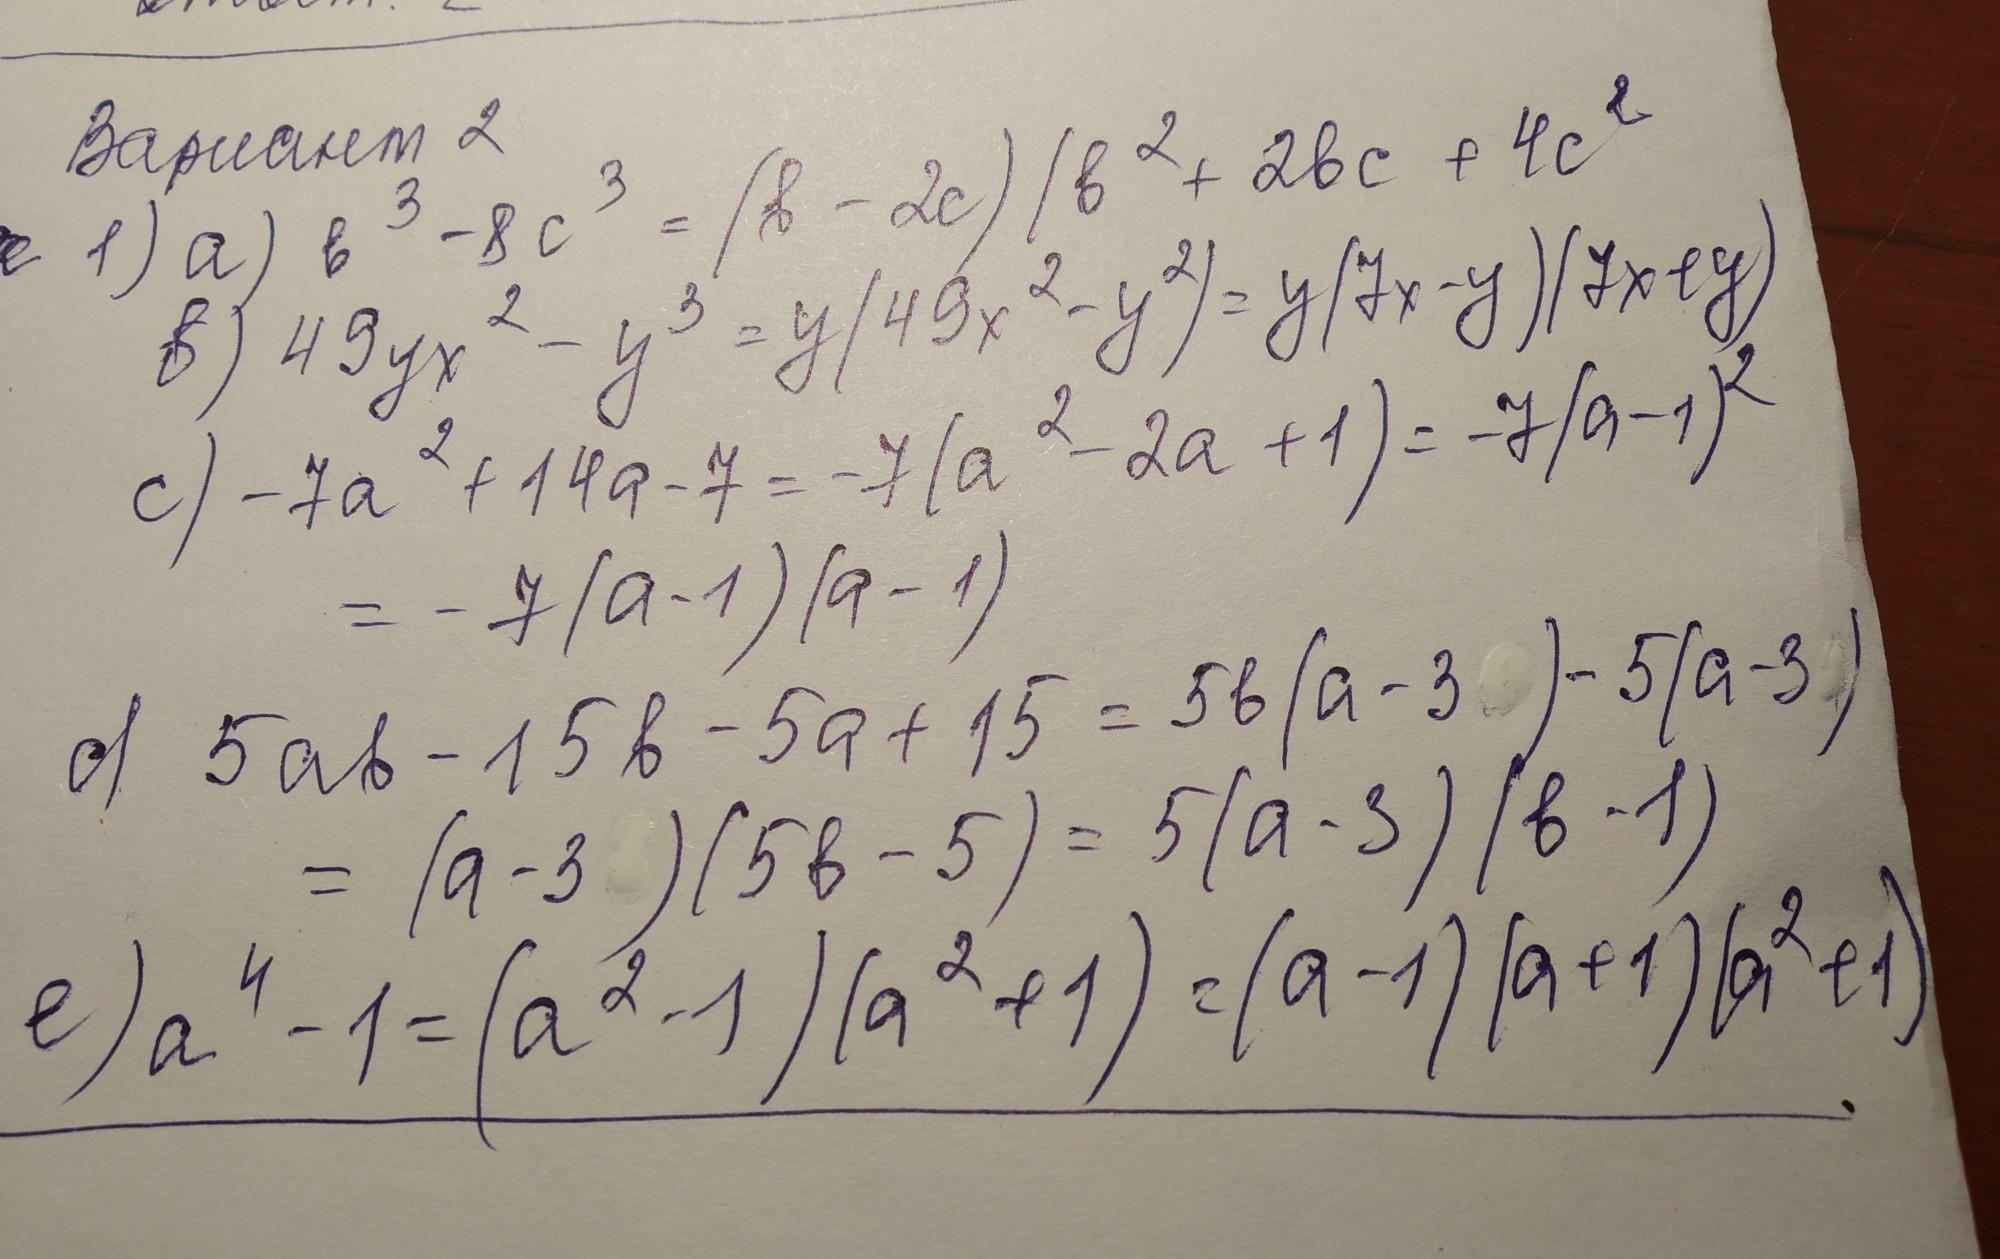 Вариант 2
1) a) b³ - 8c³ = (b - 2c)(b² + 2bc + 4c²
b) 49yx² - y³ = y(49x² - y²) = y(7x - y)(7x + y)
c) -7a² + 14a - 7 = -7(a² - 2a + 1) = -7(a - 1)²
= -7(a - 1)(a - 1)
d) 5ab - 15b - 5a + 15 = 5b(a - 3) - 5(a - 3)
= (a - 3)(5b - 5) = 5(a - 3)(b - 1)
e) a⁴ - 1 = (a² - 1)(a² + 1) = (a - 1)(a + 1)(a² + 1)